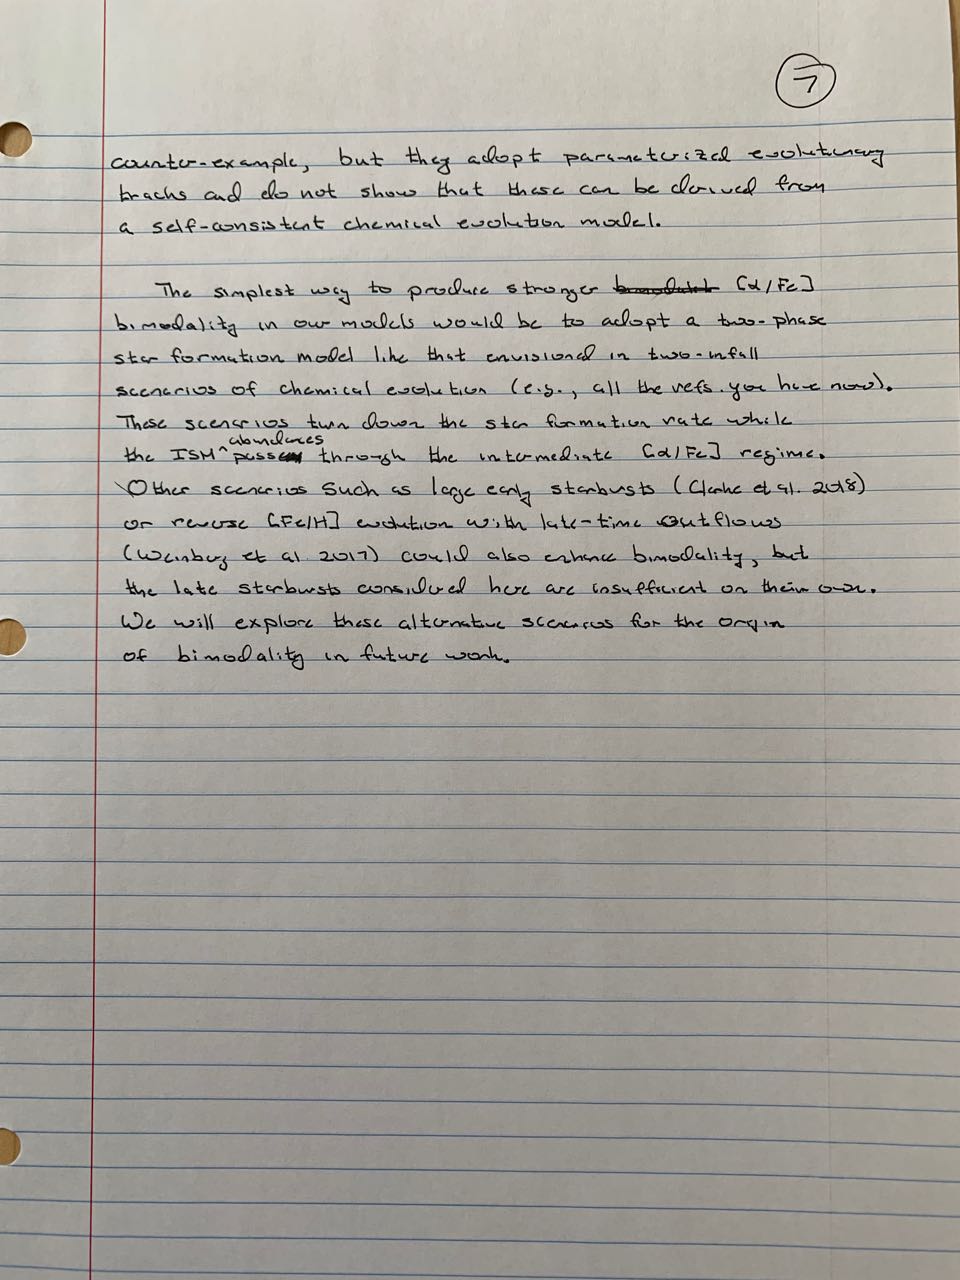 7
counter-example, but they adopt parameterized evolutionary
tracks and do not show that these can be derived from
a self-consistent chemical evolution model.
The simplest way to produce stronger [α/Fe]
bimodality in our models would be to adopt a two-phase
star formation model like that envisioned in two-infall
scenarios of chemical evolution (e.g., all the refs. you have now).
These scenarios turn down the star formation rate while
the ISM ^abundances pass through the intermediate [α/Fe] regime.
Other scenarios such as large early starbusts (Clarke et al. 2018)
or reverse [Fe/H] evolution with late-time outflows
(Weinberg et al 2017) could also enhance bimodality, but
the late starbursts considered here are insufficient on their own.
We will explore these alternative scenarios for the origin
of bimodality in future work.